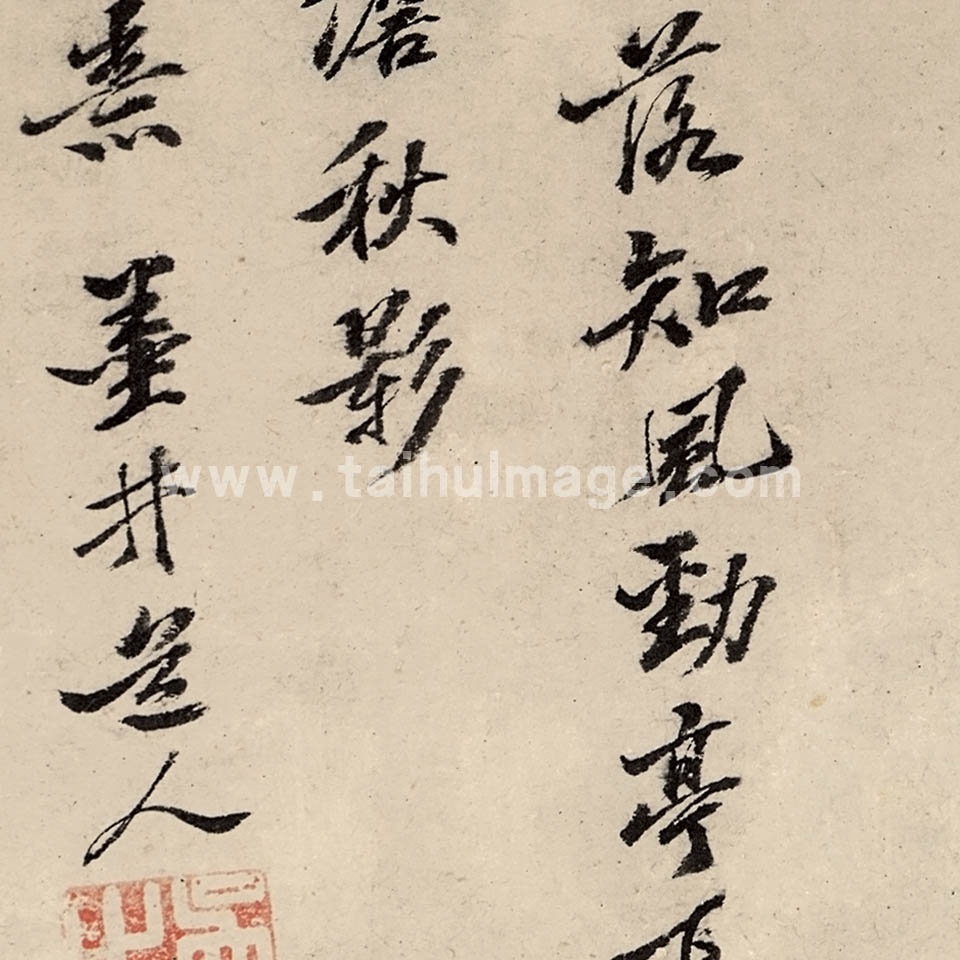 落知風勁亭
秋影
墨井道人
www.taihuImage.com